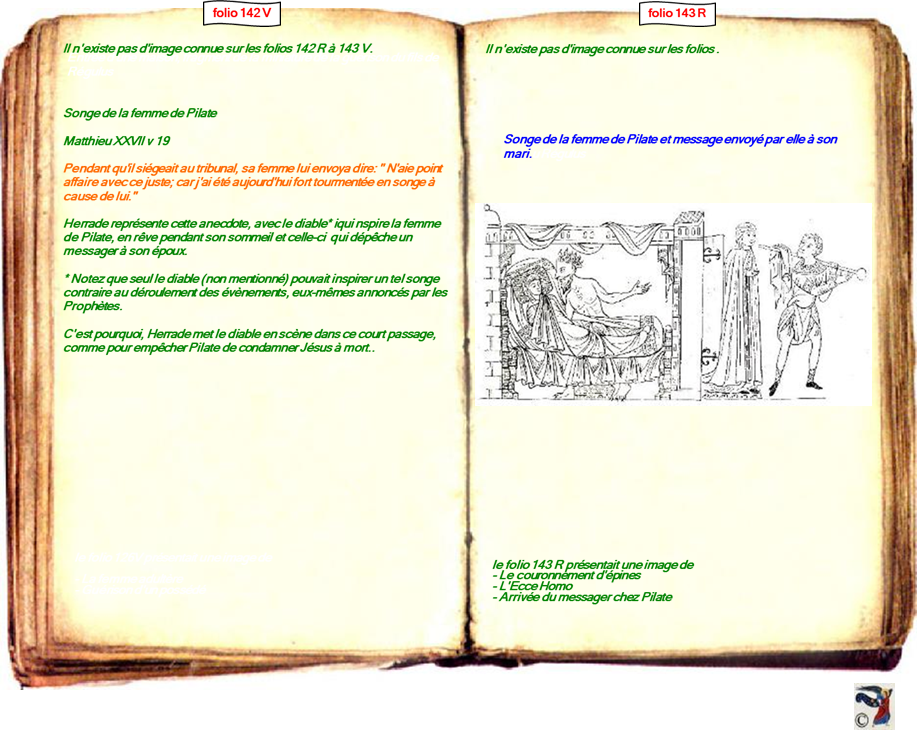 folio 142 V
Il n'existe pas d'image connue sur les folios 142 R à 143 V.
Songe de la femme de Pilate
Matthieu XXVII v 19
Pendant qu'il siégeait au tribunal, sa femme lui envoya dire: " N'aie point
affaire avec ce juste; car j'ai été aujourd'hui fort tourmentée en songe à
cause de lui."
Herrade représente cette anecdote, avec le diable* iqui nspire la femme
de Pilate, en rêve pendant son sommeil et celle-ci qui dépêche un
messager à son époux.
* Notez que seul le diable (non mentionné) pouvait inspirer un tel songe
contraire au déroulement des évènements, eux-mêmes annoncés par les
Prophètes.
C'est pourquoi, Herrade met le diable en scène dans ce court passage,
comme pour empêcher Pilate de condamner Jésus à mort..
folio 143 R
Il n'existe pas d'image connue sur les folios .
Songe de la femme de Pilate et message envoyé par elle à son
mari.
le folio 143 R présentait une image de
- Le couronnement d'épines
- L'Ecce Homo
- Arrivée du messager chez Pilate
©